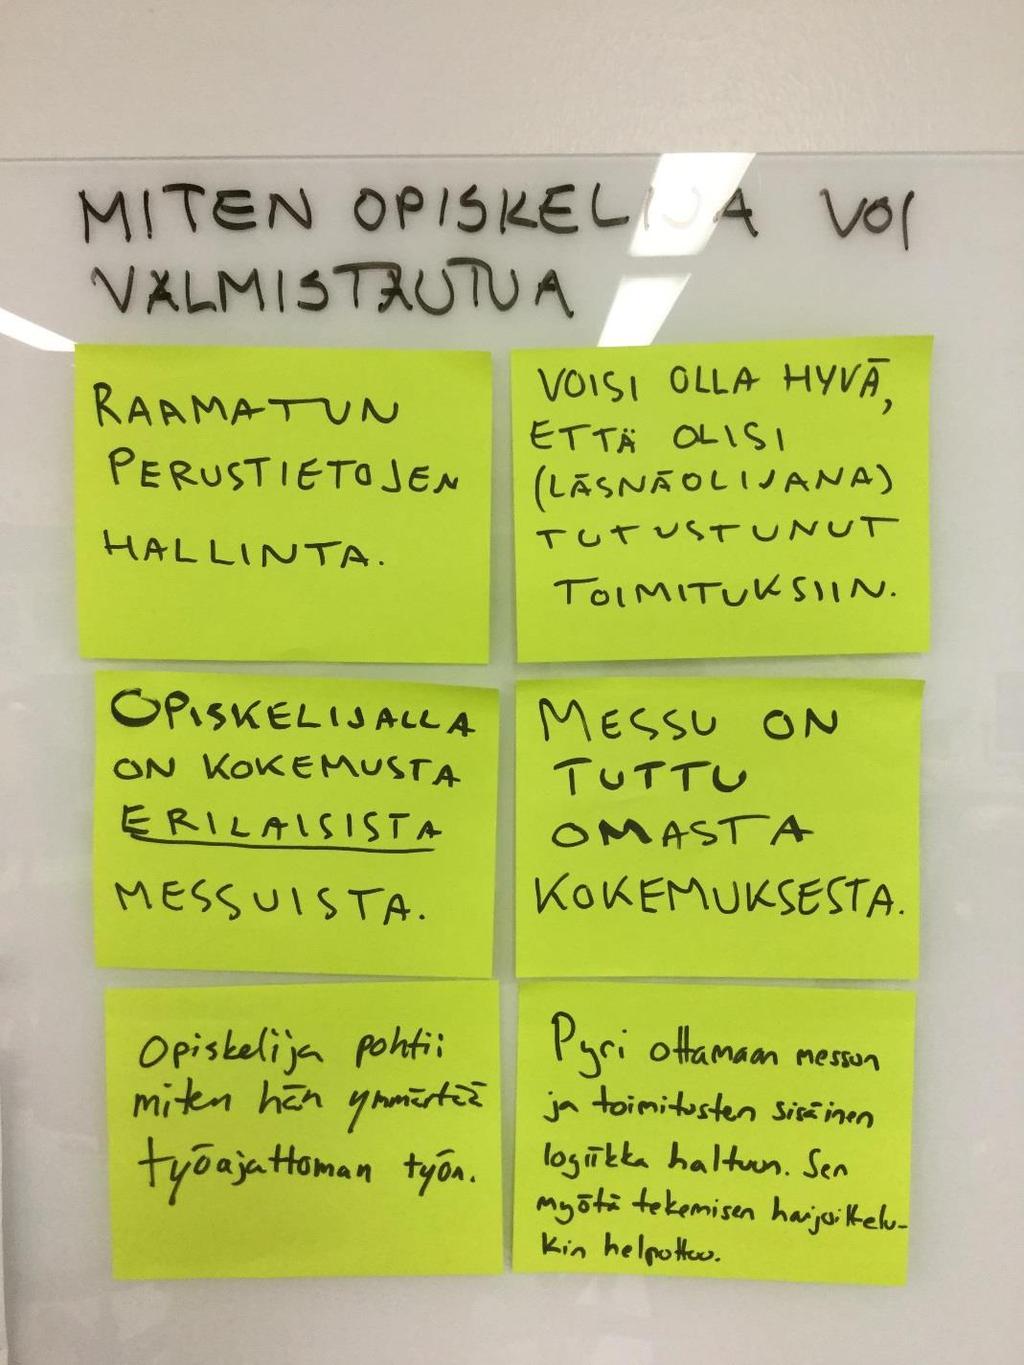 MITEN OPISKELIJA VOI
VALMISTAUTUA
RAAMATUN
PERUSTIETOJEN
HALLINTA.
VOISI OLLA HYVÄ,
ETTÄ OLISI
(LÄSNÄOLIJANA)
TUTUSTUNUT
TOIMITUKSIIN.
OPISKELIJALLA
ON KOKEMUSTA
ERILAISISTA
MESSUISTA.
MESSU ON
TUTTU
OMASTA
KOKEMUKSESTA.
Opiskelija pohtii
miten hän ymmärtää
työajattoman työn.
Pyri ottamaan messun
ja toimitusten sisäinen
logiikka haltuun. Sen
myötä tekemisen harjoittelu-
kin helpottuu.